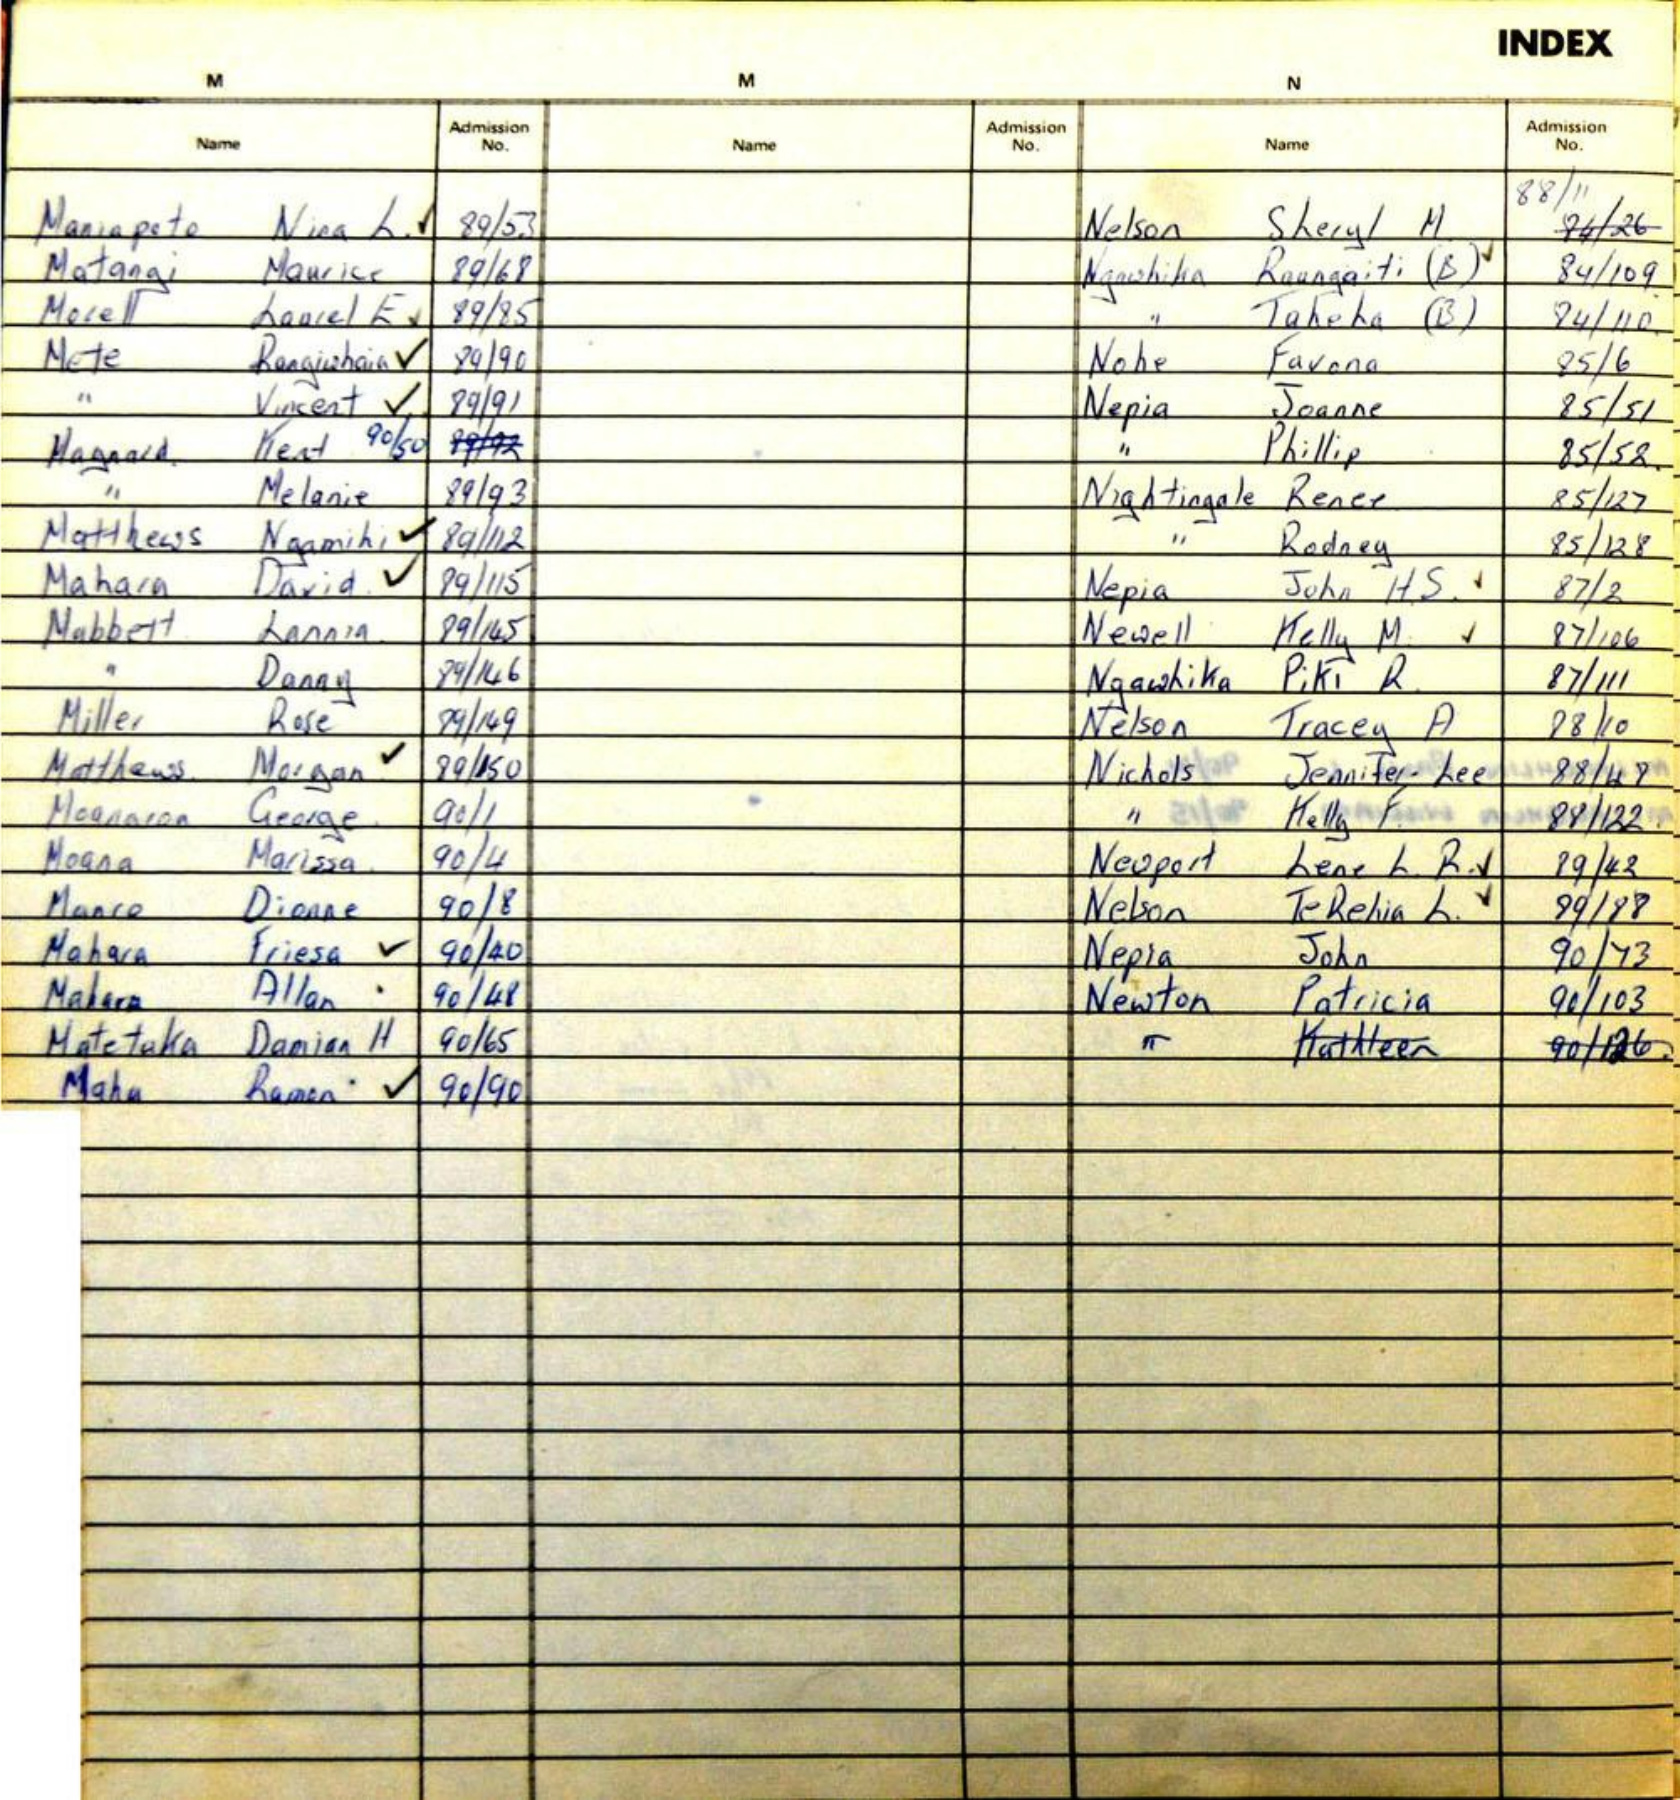 INDEX
M M N
Name Admission No. Name Admission No. Name Admission No.
88/11
Maniapoto Nina L. ✓ 89/53
Matangi Maurice 89/68
Morell Lauriel E ✓ 89/85
Mete Rangiwhaia ✓ 89/90
" Vincent ✓ 89/91
Kent 90/50 89/92
" Melanie 89/93
Matthews Ngamihi ✓ 89/112
Mahara David ✓ 89/115
Mabbett 89/145
" Danny 89/146
Miller Rose 89/149
Matthews Morgan ✓ 89/150
George 90/1
Moana Marissa 90/4
Dionne 90/8
Mahara Friesa ✓ 90/40
Mahara Allan 90/48
Matetaka Damian H 90/65
Maha Ramon ✓ 90/90
Nelson Sheryl M 84/26
Ngawhika Raungaiti (B) ✓ 84/109
" Taheka (B) 84/110
Nohe Favona 85/6
Nepia Joanne 85/51
" Phillip 85/52
Nightingale Renee 85/127
" Rodney 85/128
Nepia John H.S. ✓ 87/2
Newell Kelly M. ✓ 87/106
Ngawhika Piki R. 87/111
Nelson Tracey A 88/10
Nichols Jennifer-Lee
" Kelly F. 88/122
Newport Lene L. R. ✓ 89/42
Nelson TeRehia L. ✓ 89/88
Nepia John 90/73
Newton Patricia 90/103
" Kathleen 90/126